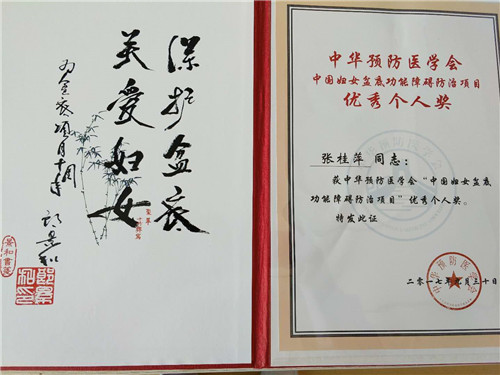 保护盆底
关爱妇女
为盆底项目十周年
郎景和
中华预防医学会
中国妇女盆底功能障碍防治项目
优秀个人奖
张桂萍 同志：
获中华预防医学会“中国妇女盆底
功能障碍防治项目”优秀个人奖。
特发此证
中华预防医学会
二〇一七年 月三十日